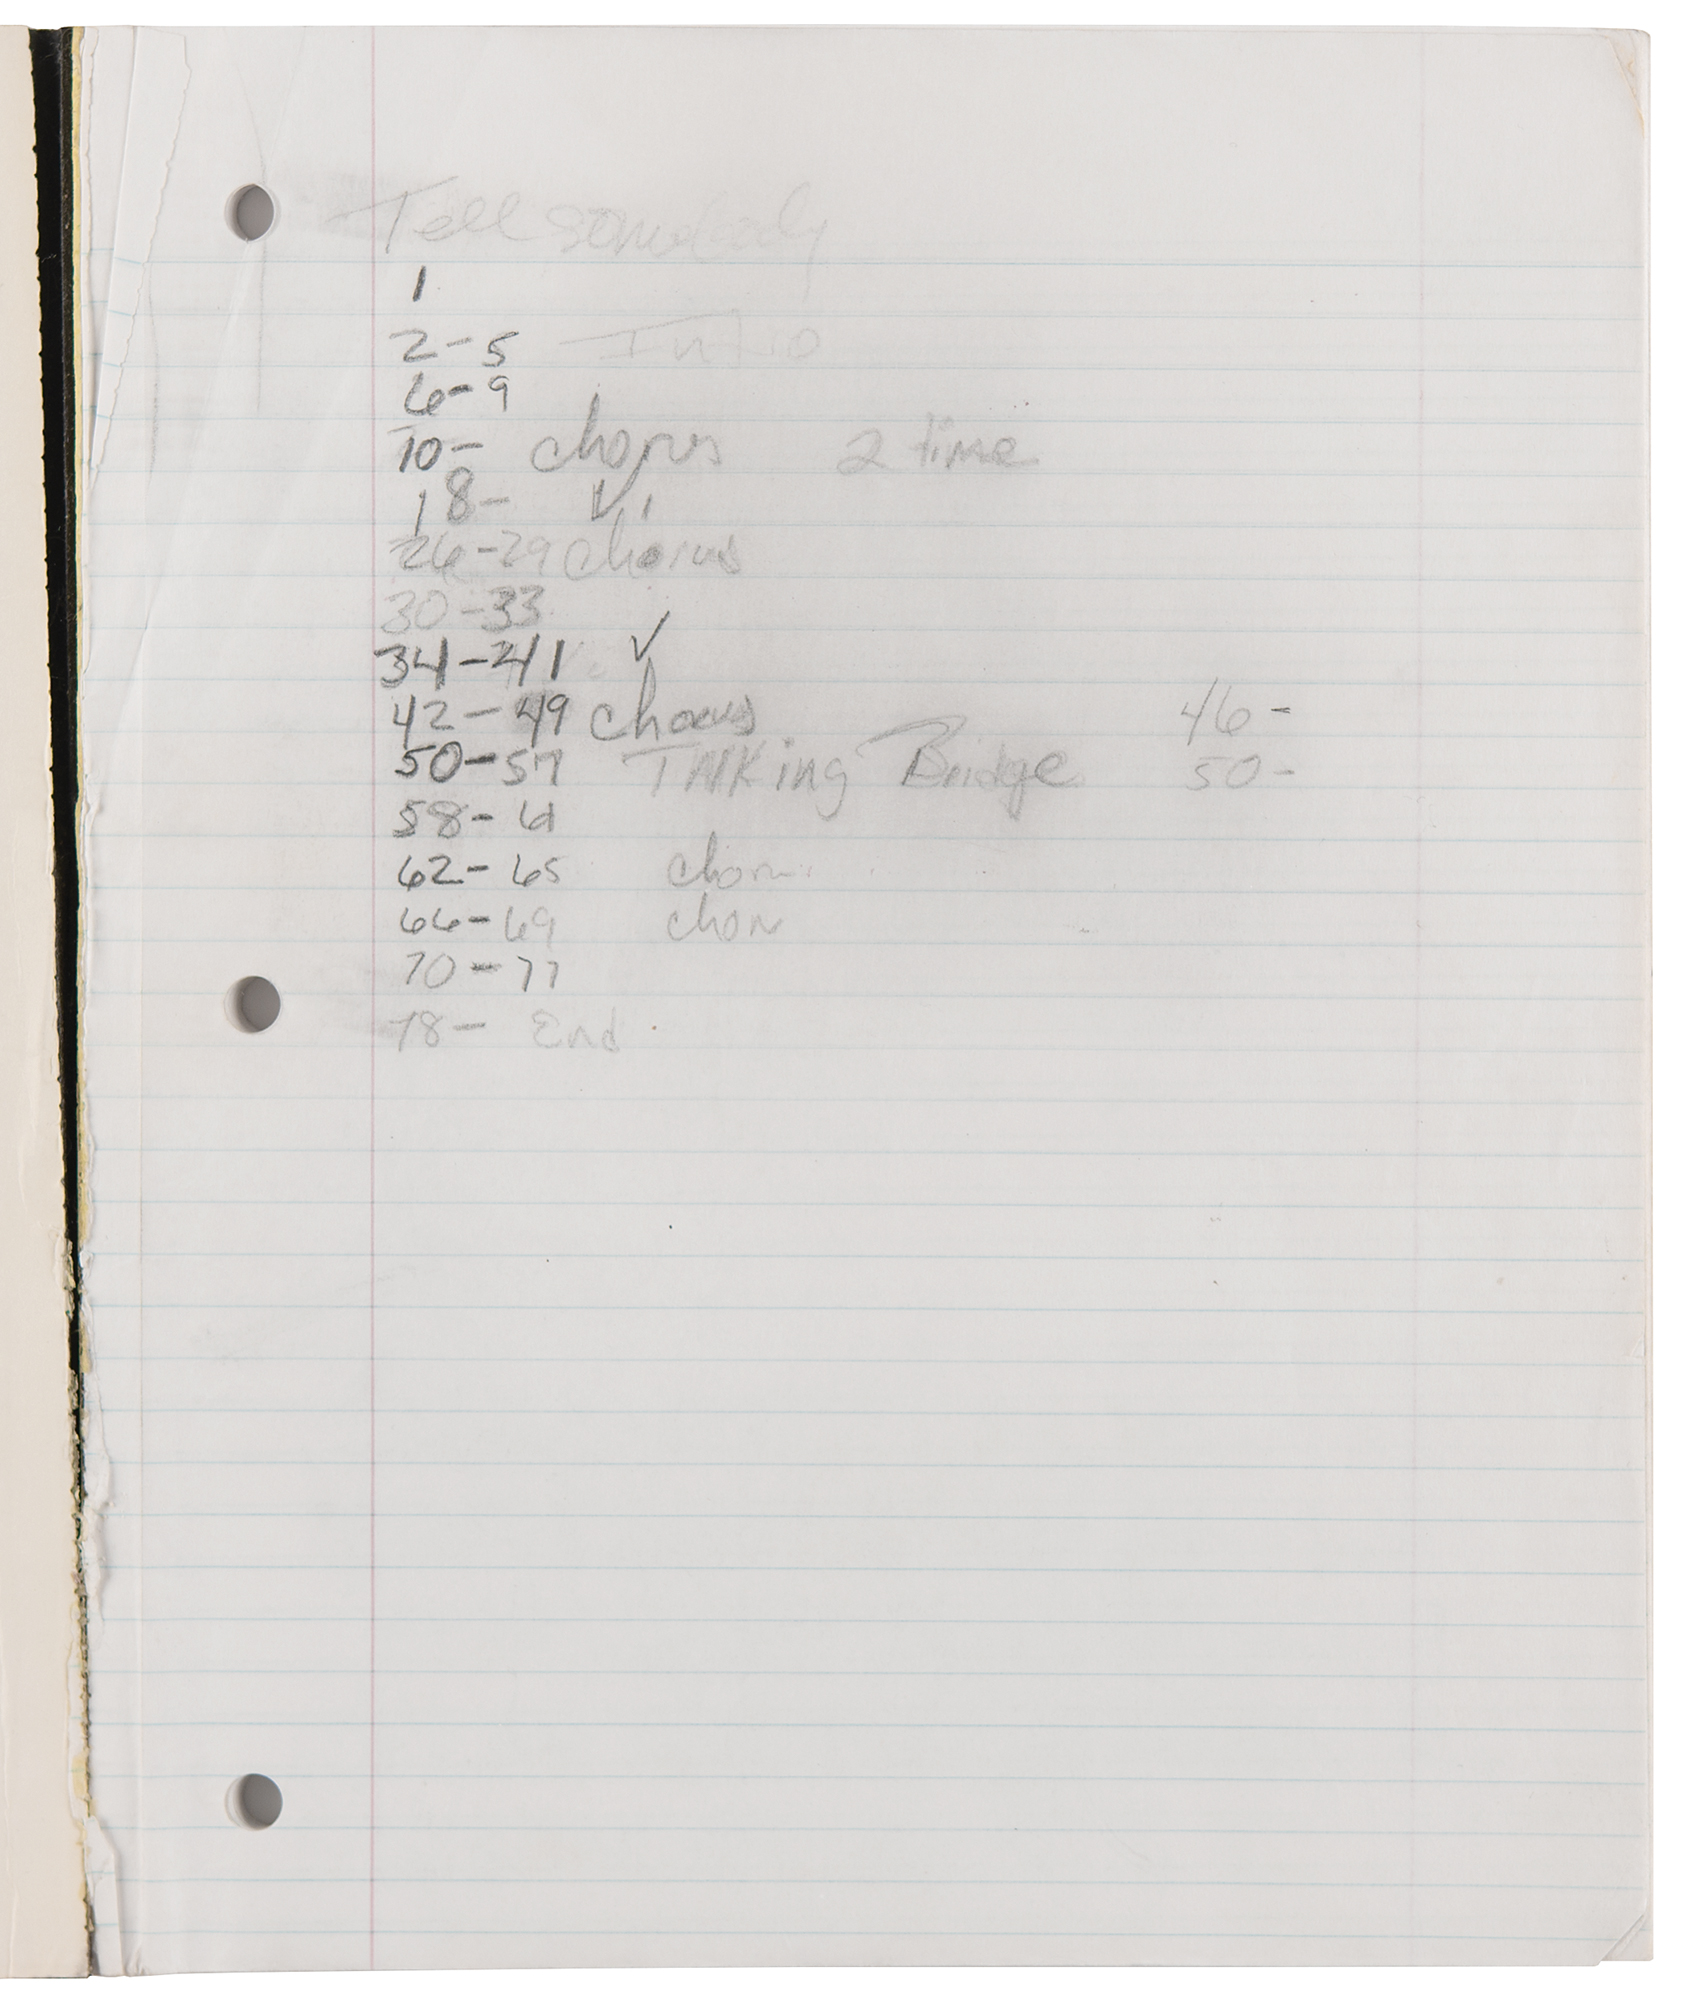 Tell somebody
1
2-5 Intro
6-9
10- chorus 2 time
18- V 1
26-29 chorus
30-33
34-41 ✓
42-49 chorus 46-
50-57 TALKing Bridge 50-
58-61
62-65 chor
66-69 chor
70-77
78- End